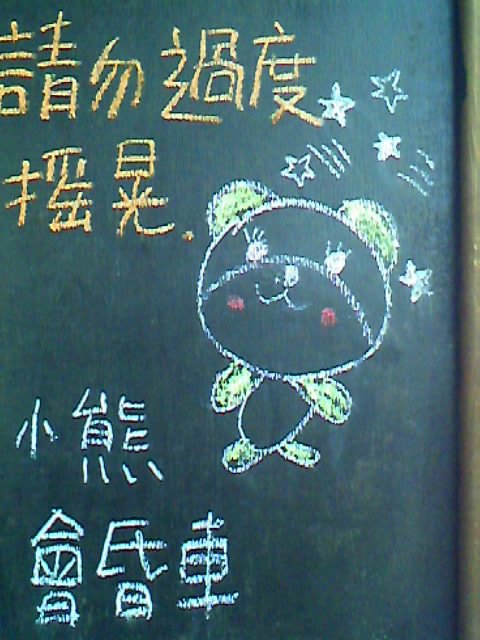 請勿過度
搖晃.
小熊
會昏車